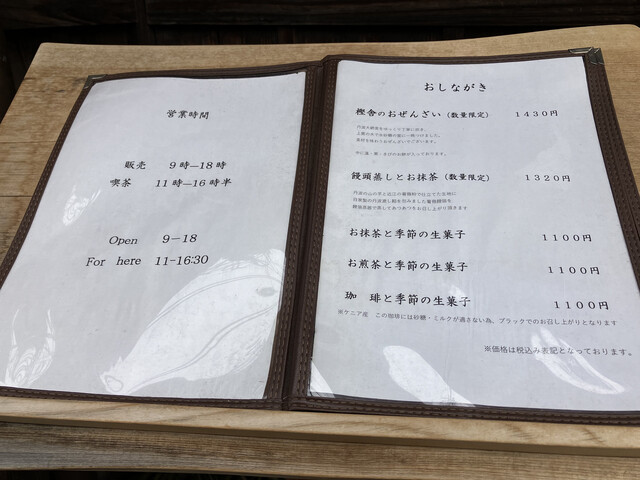 営業時間
販売 9時―18時
喫茶 11時―16時半
Open 9−18
For here 11-16:30
おしながき
樫舎のおぜんざい（数量限定） 1430円
饅頭蒸しとお抹茶（数量限定） 1320円
お抹茶と季節の生菓子 1100円
お煎茶と季節の生菓子 1100円
珈 琲と季節の生菓子 1100円
※ケニア産 この珈琲には砂糖・ミルクが適さない為、ブラックでのお召し上がりとなります
※価格は税込み表記となっております。